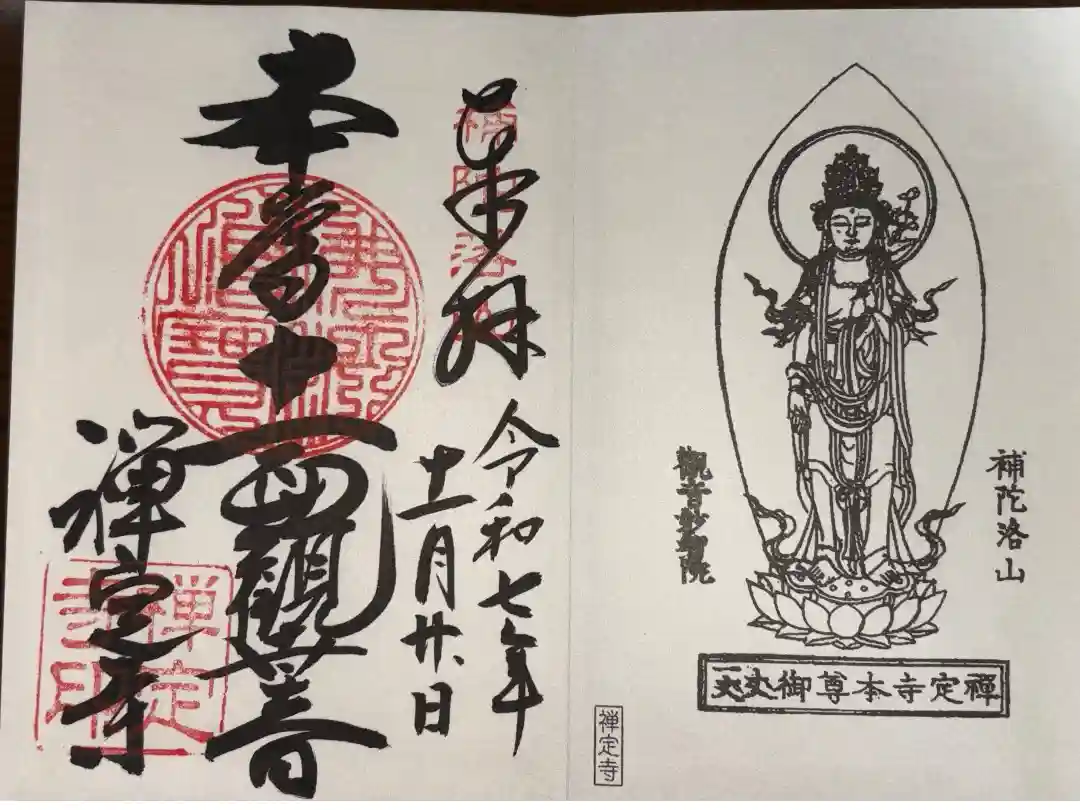 補陀洛山
禪定寺本尊御丈
禅定寺
奉拝
補陀洛山
令和七年
十一月廿
日
本尊十一面觀音
禅定寺
禅定
寺印